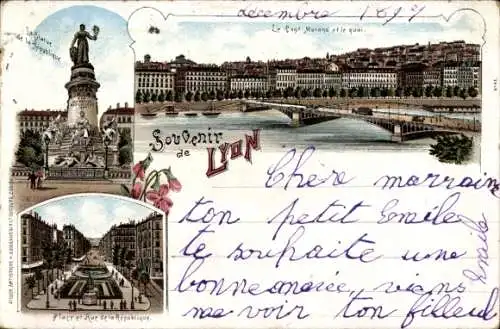 décembre 1897
La Statue
de la République.
Le Pont Morand et le quai.
Souvenir
de
Lyon
Place et Rue de la République.
Chère marraine
ton petit Emile
te souhaite une
bonne année, viens
me voir ton filleul
Emile